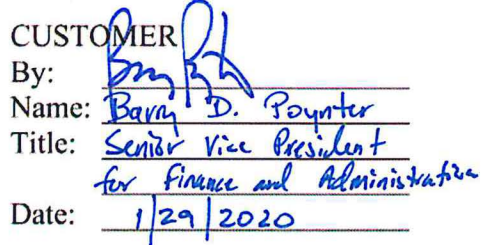 CUSTOMER
By:
Name: Barry D. Poynter
Title: Senior Vice President
for Finance and Administration
Date: 1/29/2020